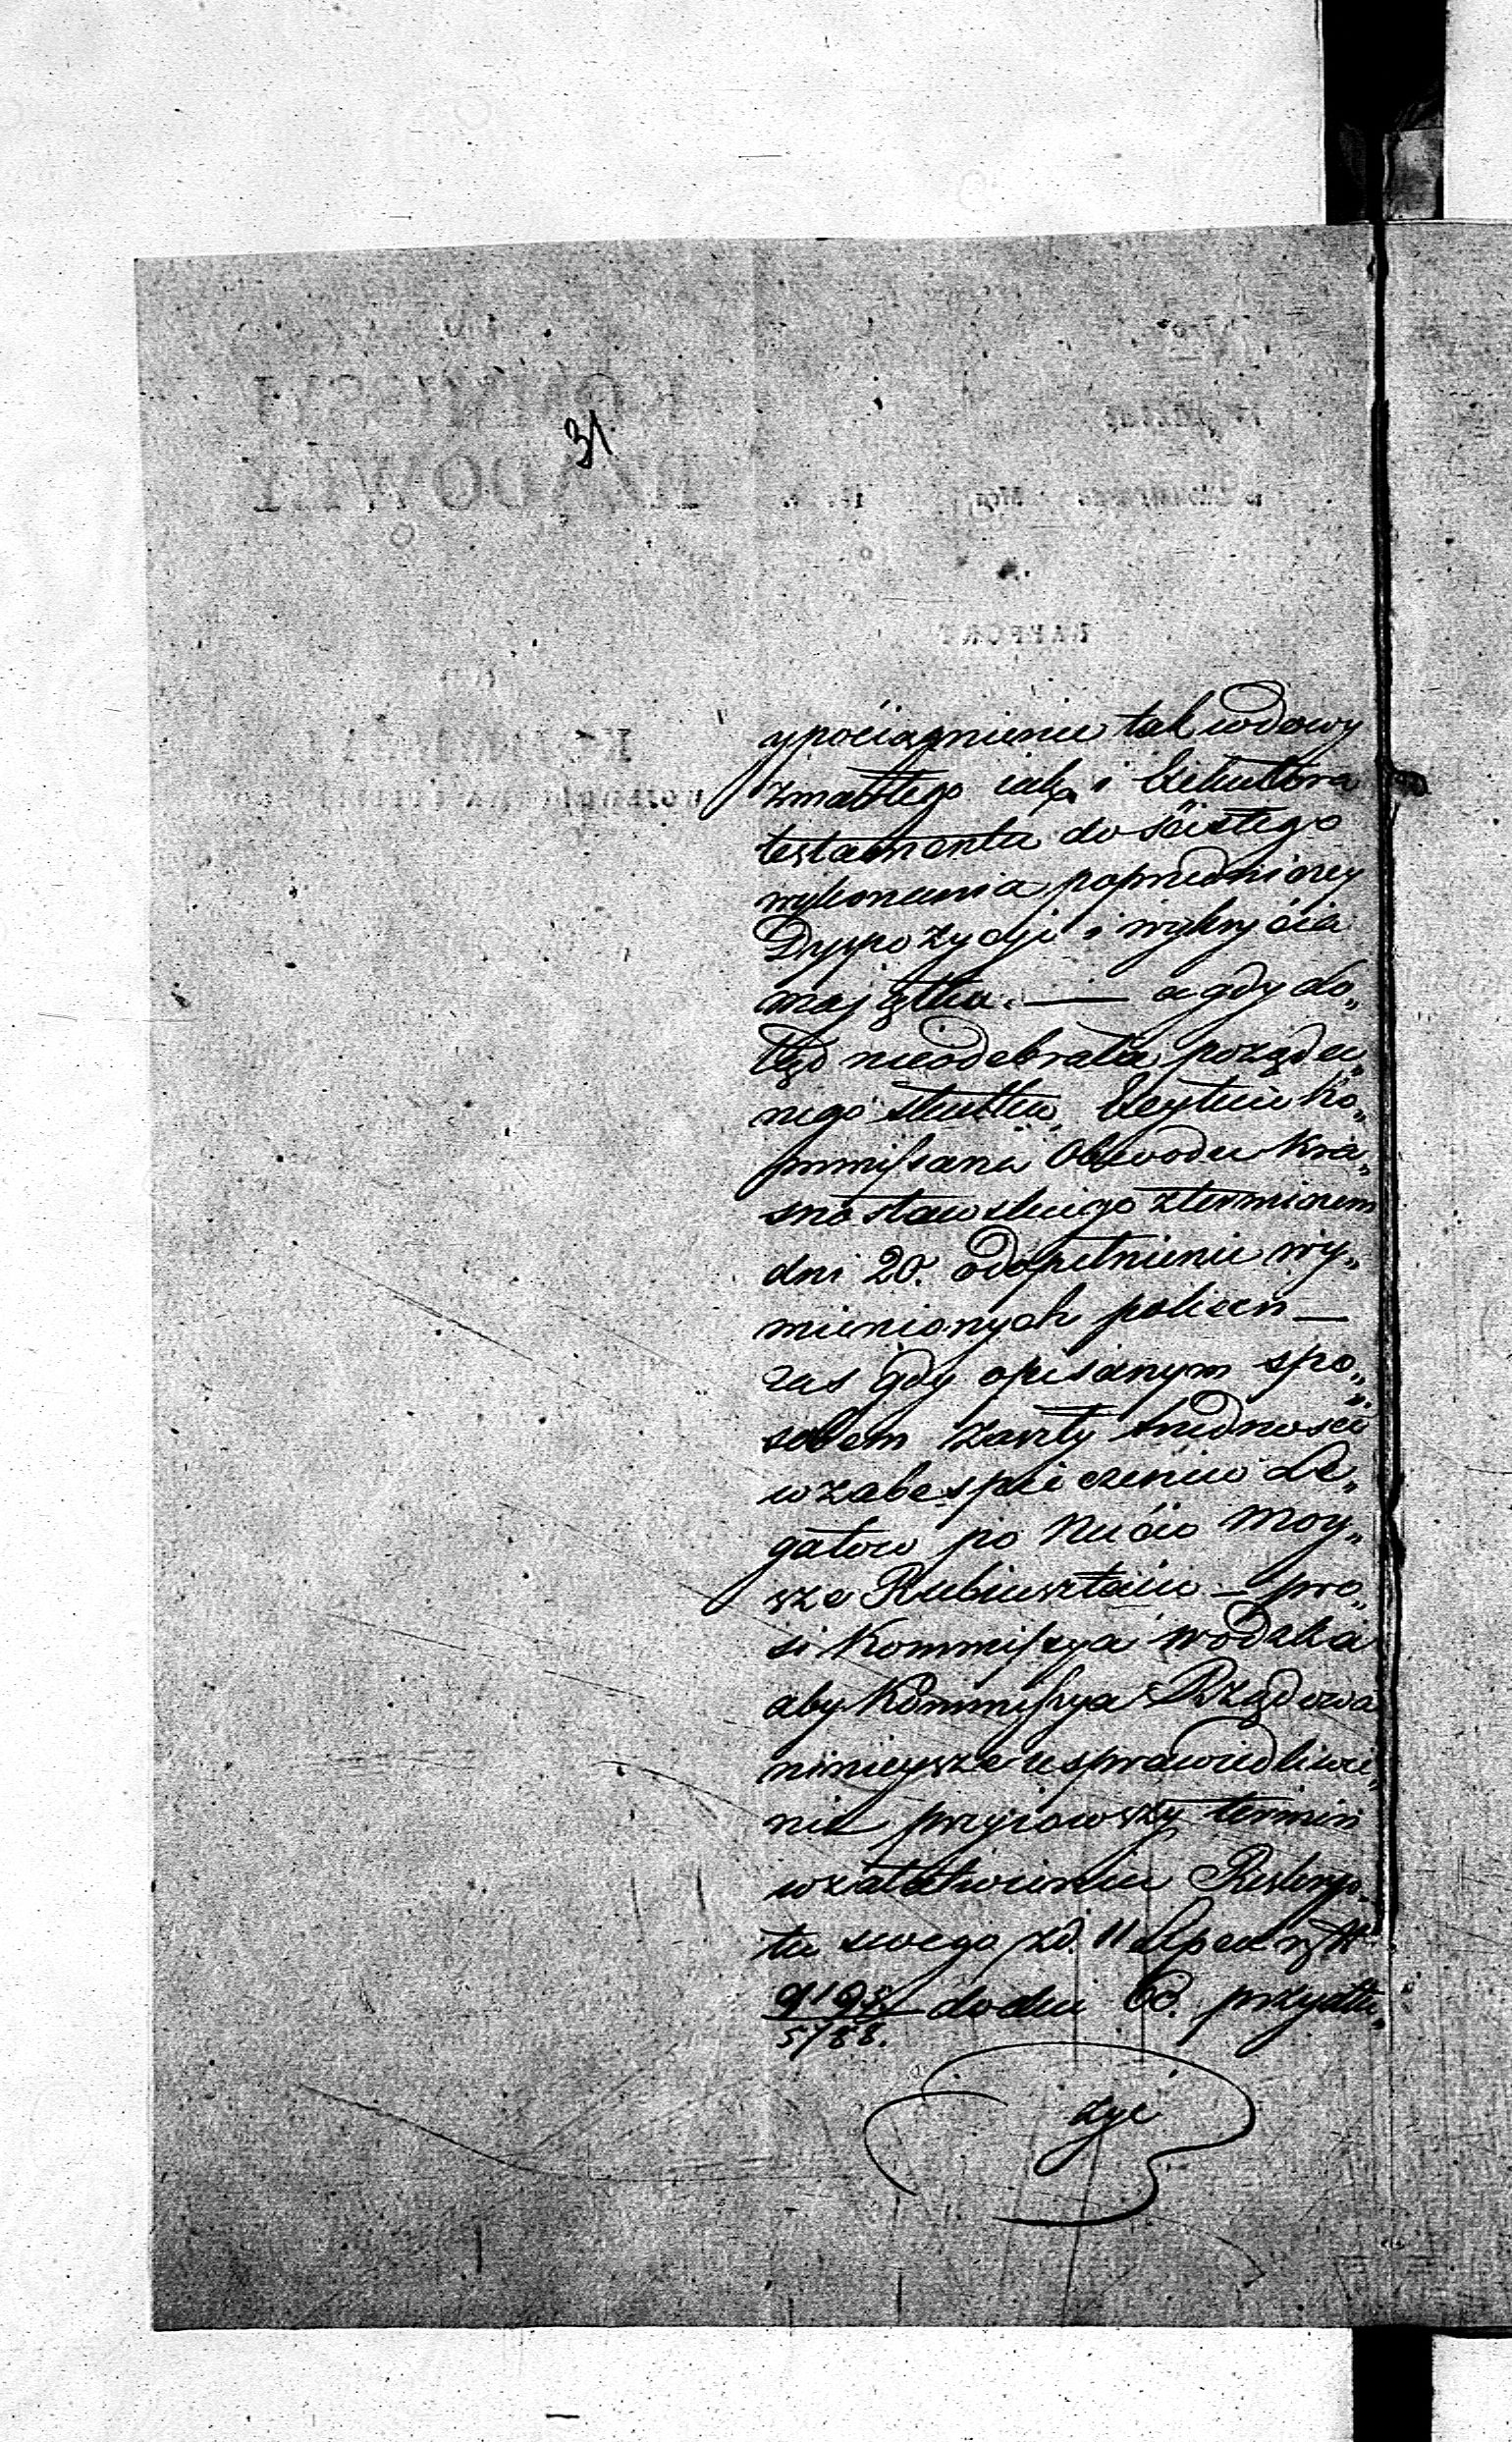 31
ypociągnieniu tak wdowy
zmarłego iak i Exekutora
testamentu do ścisłego
wykonania poprzedniczey
Dyspozycji i wykrycia
majątku. — a gdy do„
tąd nieodebrała pożąda„
nego skutku, Ko„
mmissarza Obwodu Kra„
snostawskiego z terminem
dni 20. odopełnienie wy„
mienionych poleceń —
zas gdy opisanym spo„
sobem zaszły trudności
w zabespieczeniu Le„
gatow po Nucie Moy„
sze Rubinsztaiu — pro„
si Kommissya Wodzka
aby Kommissya Rządowa
nimieysze usprawiedliwie„
nie przyiowszy termin
w załatwieniu Reskryp„
tu swego zd. 11 Lipca r. b. N
9193/5788. do dni 60. przydłu„
żyć